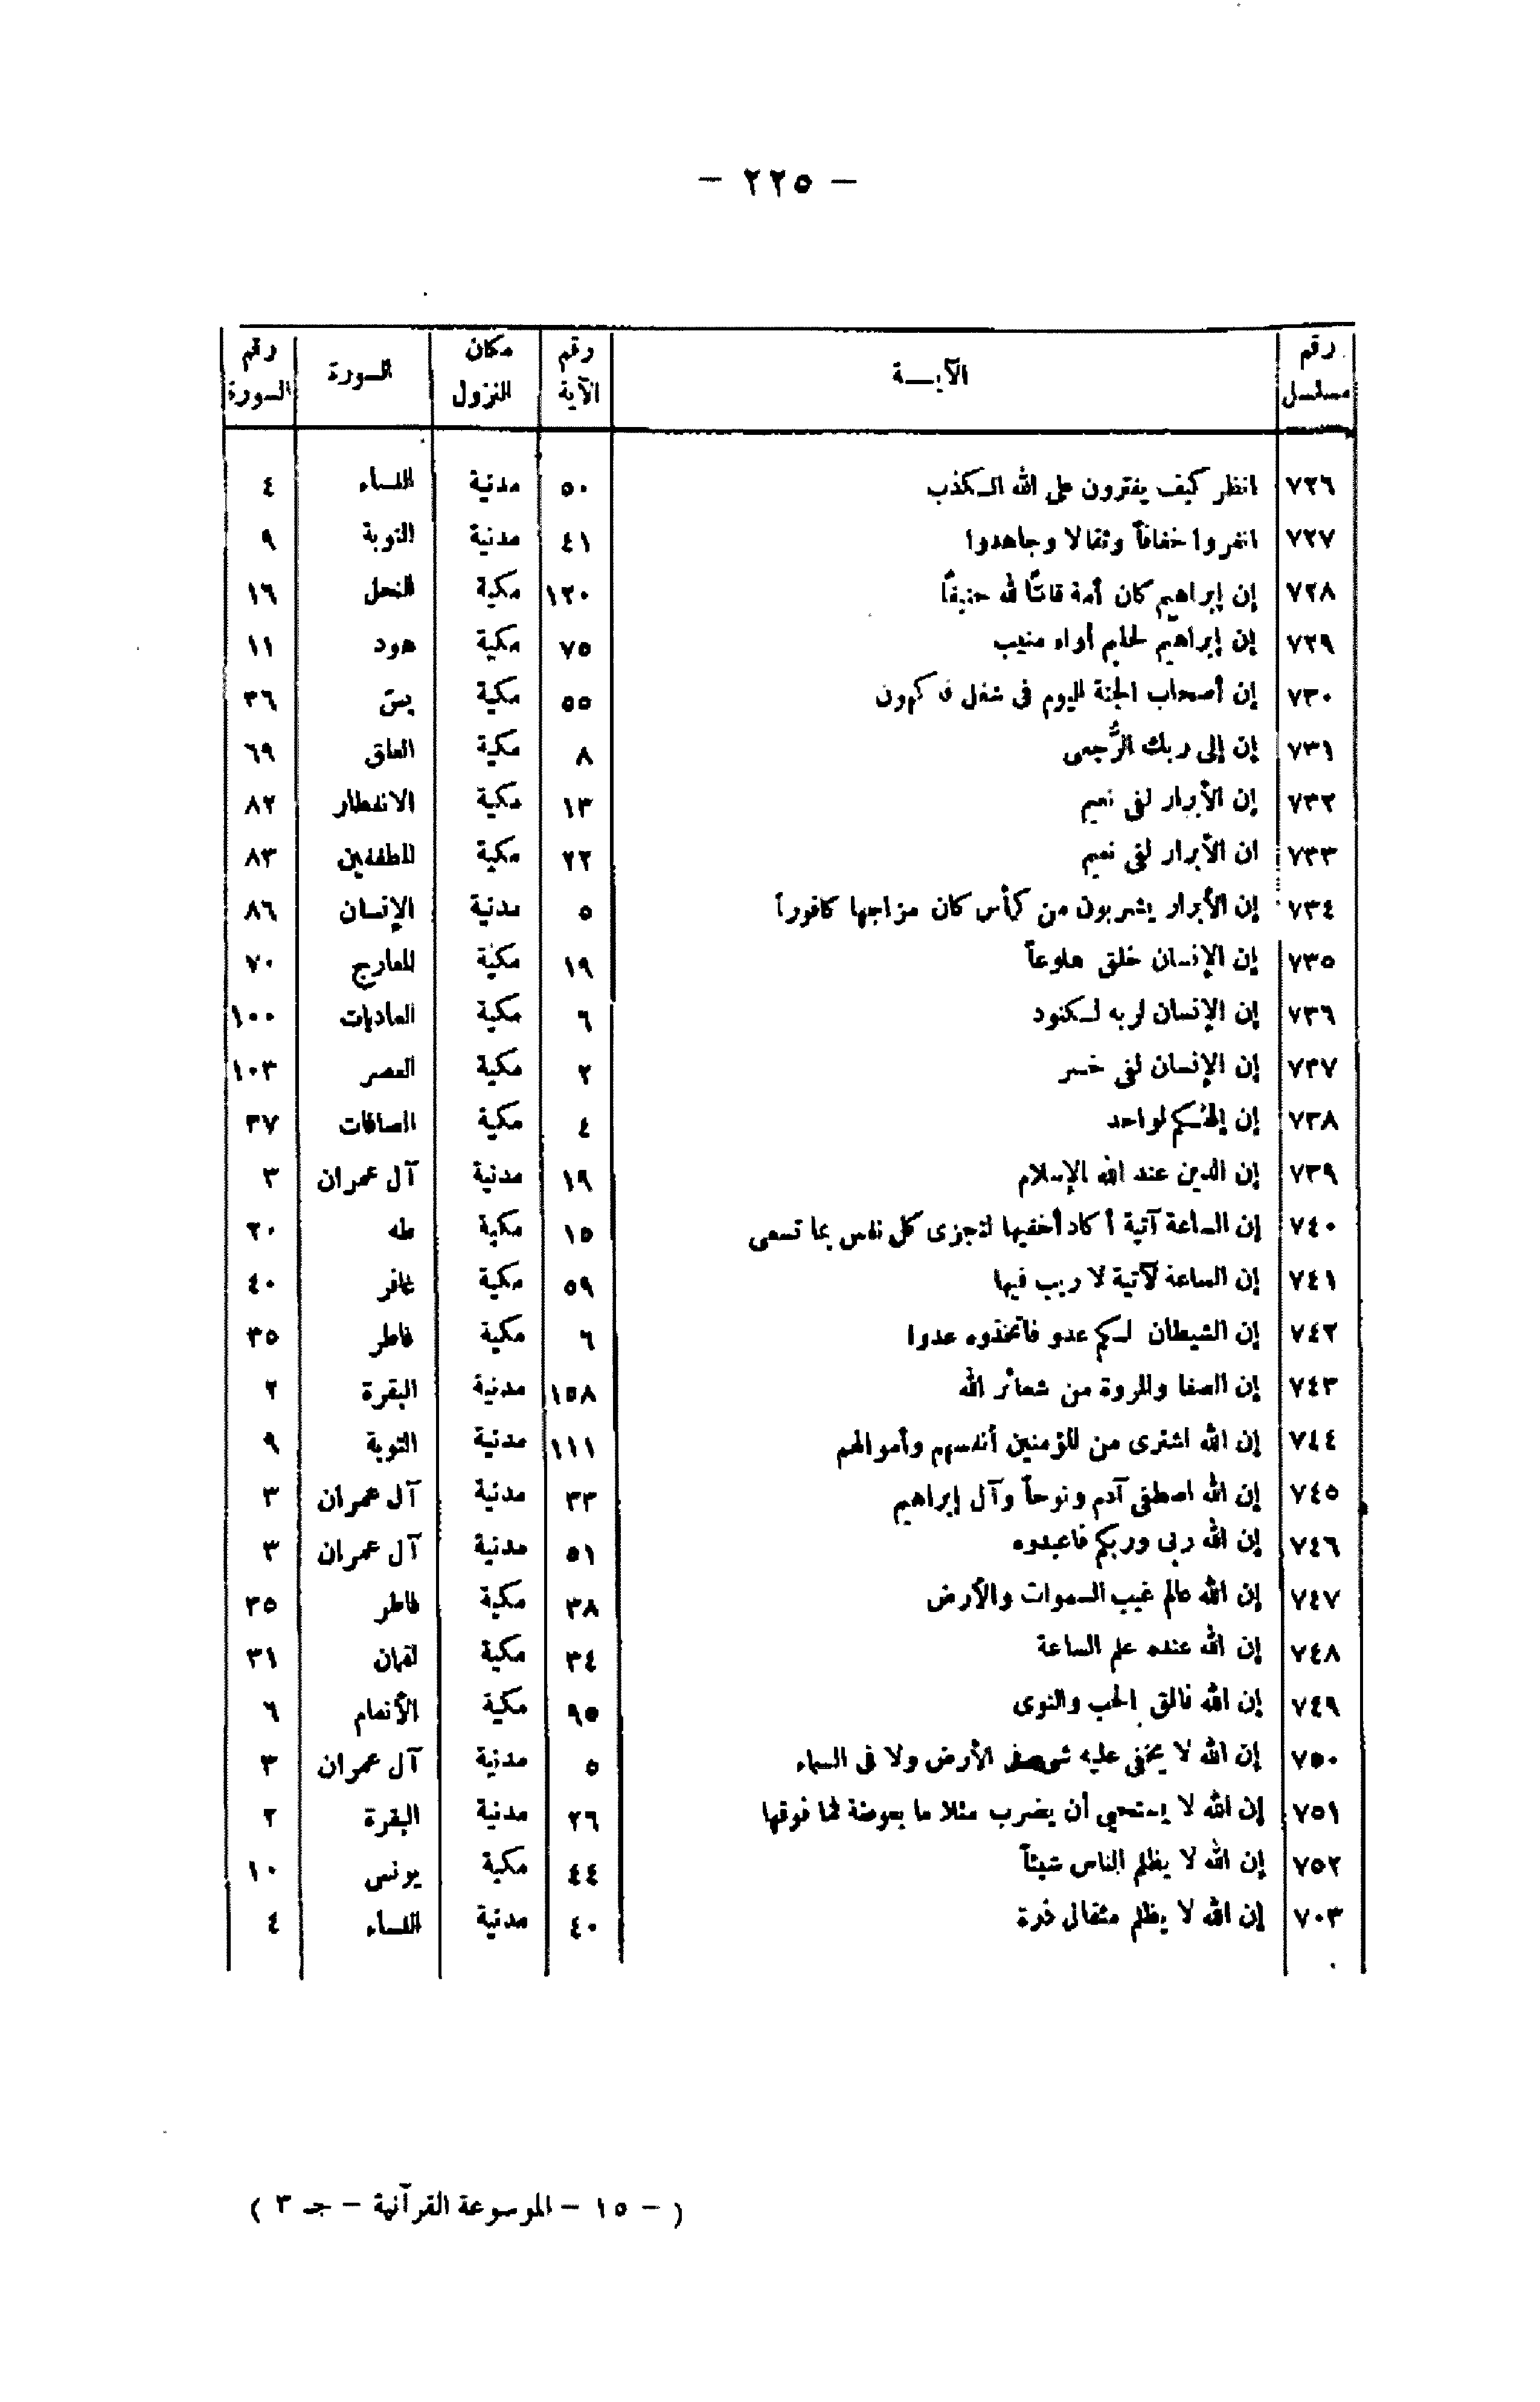 — ٢٢٥ —
رقم مسلسل | الآيـــة | رقم الآية | مكان النزول | السورة | رقم السورة
٧٢٦ | انظر كيف يفترون على الله الـكذب | ٥٠ | مدنية | النساء | ٤
٧٢٧ | انفروا خفافاً وثقالا وجاهدوا | ٤١ | مدنية | التوبة | ٩
٧٢٨ | إن إبراهيم كان أمة قانتًا لله حنيفًا | ١٢٠ | مكية | النحل | ١٦
٧٢٩ | إن إبراهيم لحليم أواه منيب | ٧٥ | مكية | هود | ١١
٧٣٠ | إن أصحاب الجنة اليوم فى شغل فاكهون | ٥٥ | مكية | يسٓ | ٣٦
٧٣١ | إن إلى ربك الرُّجعى | ٨ | مكية | العلق | ٦٩
٧٣٢ | إن الأبرار لفى نعيم | ١٣ | مكية | الانفطار | ٨٢
٧٣٣ | ان الأبرار لفى نعيم | ٢٢ | مكية | المطففين | ٨٣
٧٣٤ | إن الأبرار يشربون من كأس كان مزاجها كافوراً | ٥ | مدنية | الإنسان | ٨٦
٧٣٥ | إن الإنسان خلق هلوعاً | ١٩ | مكية | المعارج | ٧٠
٧٣٦ | إن الإنسان لربه لـكنود | ٦ | مكية | العاديات | ١٠٠
٧٣٧ | إن الإنسان لفى خسر | ٢ | مكية | العصر | ١٠٣
٧٣٨ | إن إلهـٰكم لواحد | ٤ | مكية | الصافات | ٣٧
٧٣٩ | إن الدين عند الله الإسلام | ١٩ | مدنية | آل عمران | ٣
٧٤٠ | إن الساعة آتية أكاد أخفيها لتجزى كل نفس بما تسعى | ١٥ | مكية | طه | ٢٠
٧٤١ | إن الساعة لآتية لا ريب فيها | ٥٩ | مكية | غافر | ٤٠
٧٤٢ | إن الشيطان لـكم عدو فاتخذوه عدوا | ٦ | مكية | فاطر | ٣٥
٧٤٣ | إن الصفا والمروة من شعائر الله | ١٥٨ | مدنية | البقرة | ٢
٧٤٤ | إن الله اشترى من المؤمنين أنفسهم وأموالهم | ١١١ | مدنية | التوبة | ٩
٧٤٥ | إن الله اصطفى آدم ونوحاً وآل إبراهيم | ٣٣ | مدنية | آل عمران | ٣
٧٤٦ | إن الله ربى وربكم فاعبدوه | ٥١ | مدنية | آل عمران | ٣
٧٤٧ | إن الله عالم غيب السموات والأرض | ٣٨ | مكية | فاطر | ٣٥
٧٤٨ | إن الله عنده علم الساعة | ٣٤ | مكية | لقمان | ٣١
٧٤٩ | إن الله فالق الحب والنوى | ٩٥ | مكية | الأنعام | ٦
٧٥٠ | إن الله لا يخفى عليه شىء فى الأرض ولا فى السماء | ٥ | مدنية | آل عمران | ٣
٧٥١ | إن الله لا يستحيى أن يضرب مثلا ما بعوضة فما فوقها | ٢٦ | مدنية | البقرة | ٢
٧٥٢ | إن الله لا يظلم الناس شيئاً | ٤٤ | مكية | يونس | ١٠
٧٠٣ | إن الله لا يظلم مثقال ذرة | ٤٠ | مدنية | النساء | ٤
( — ١٥ — الموسوعة القرآنية — جـ ٣ )